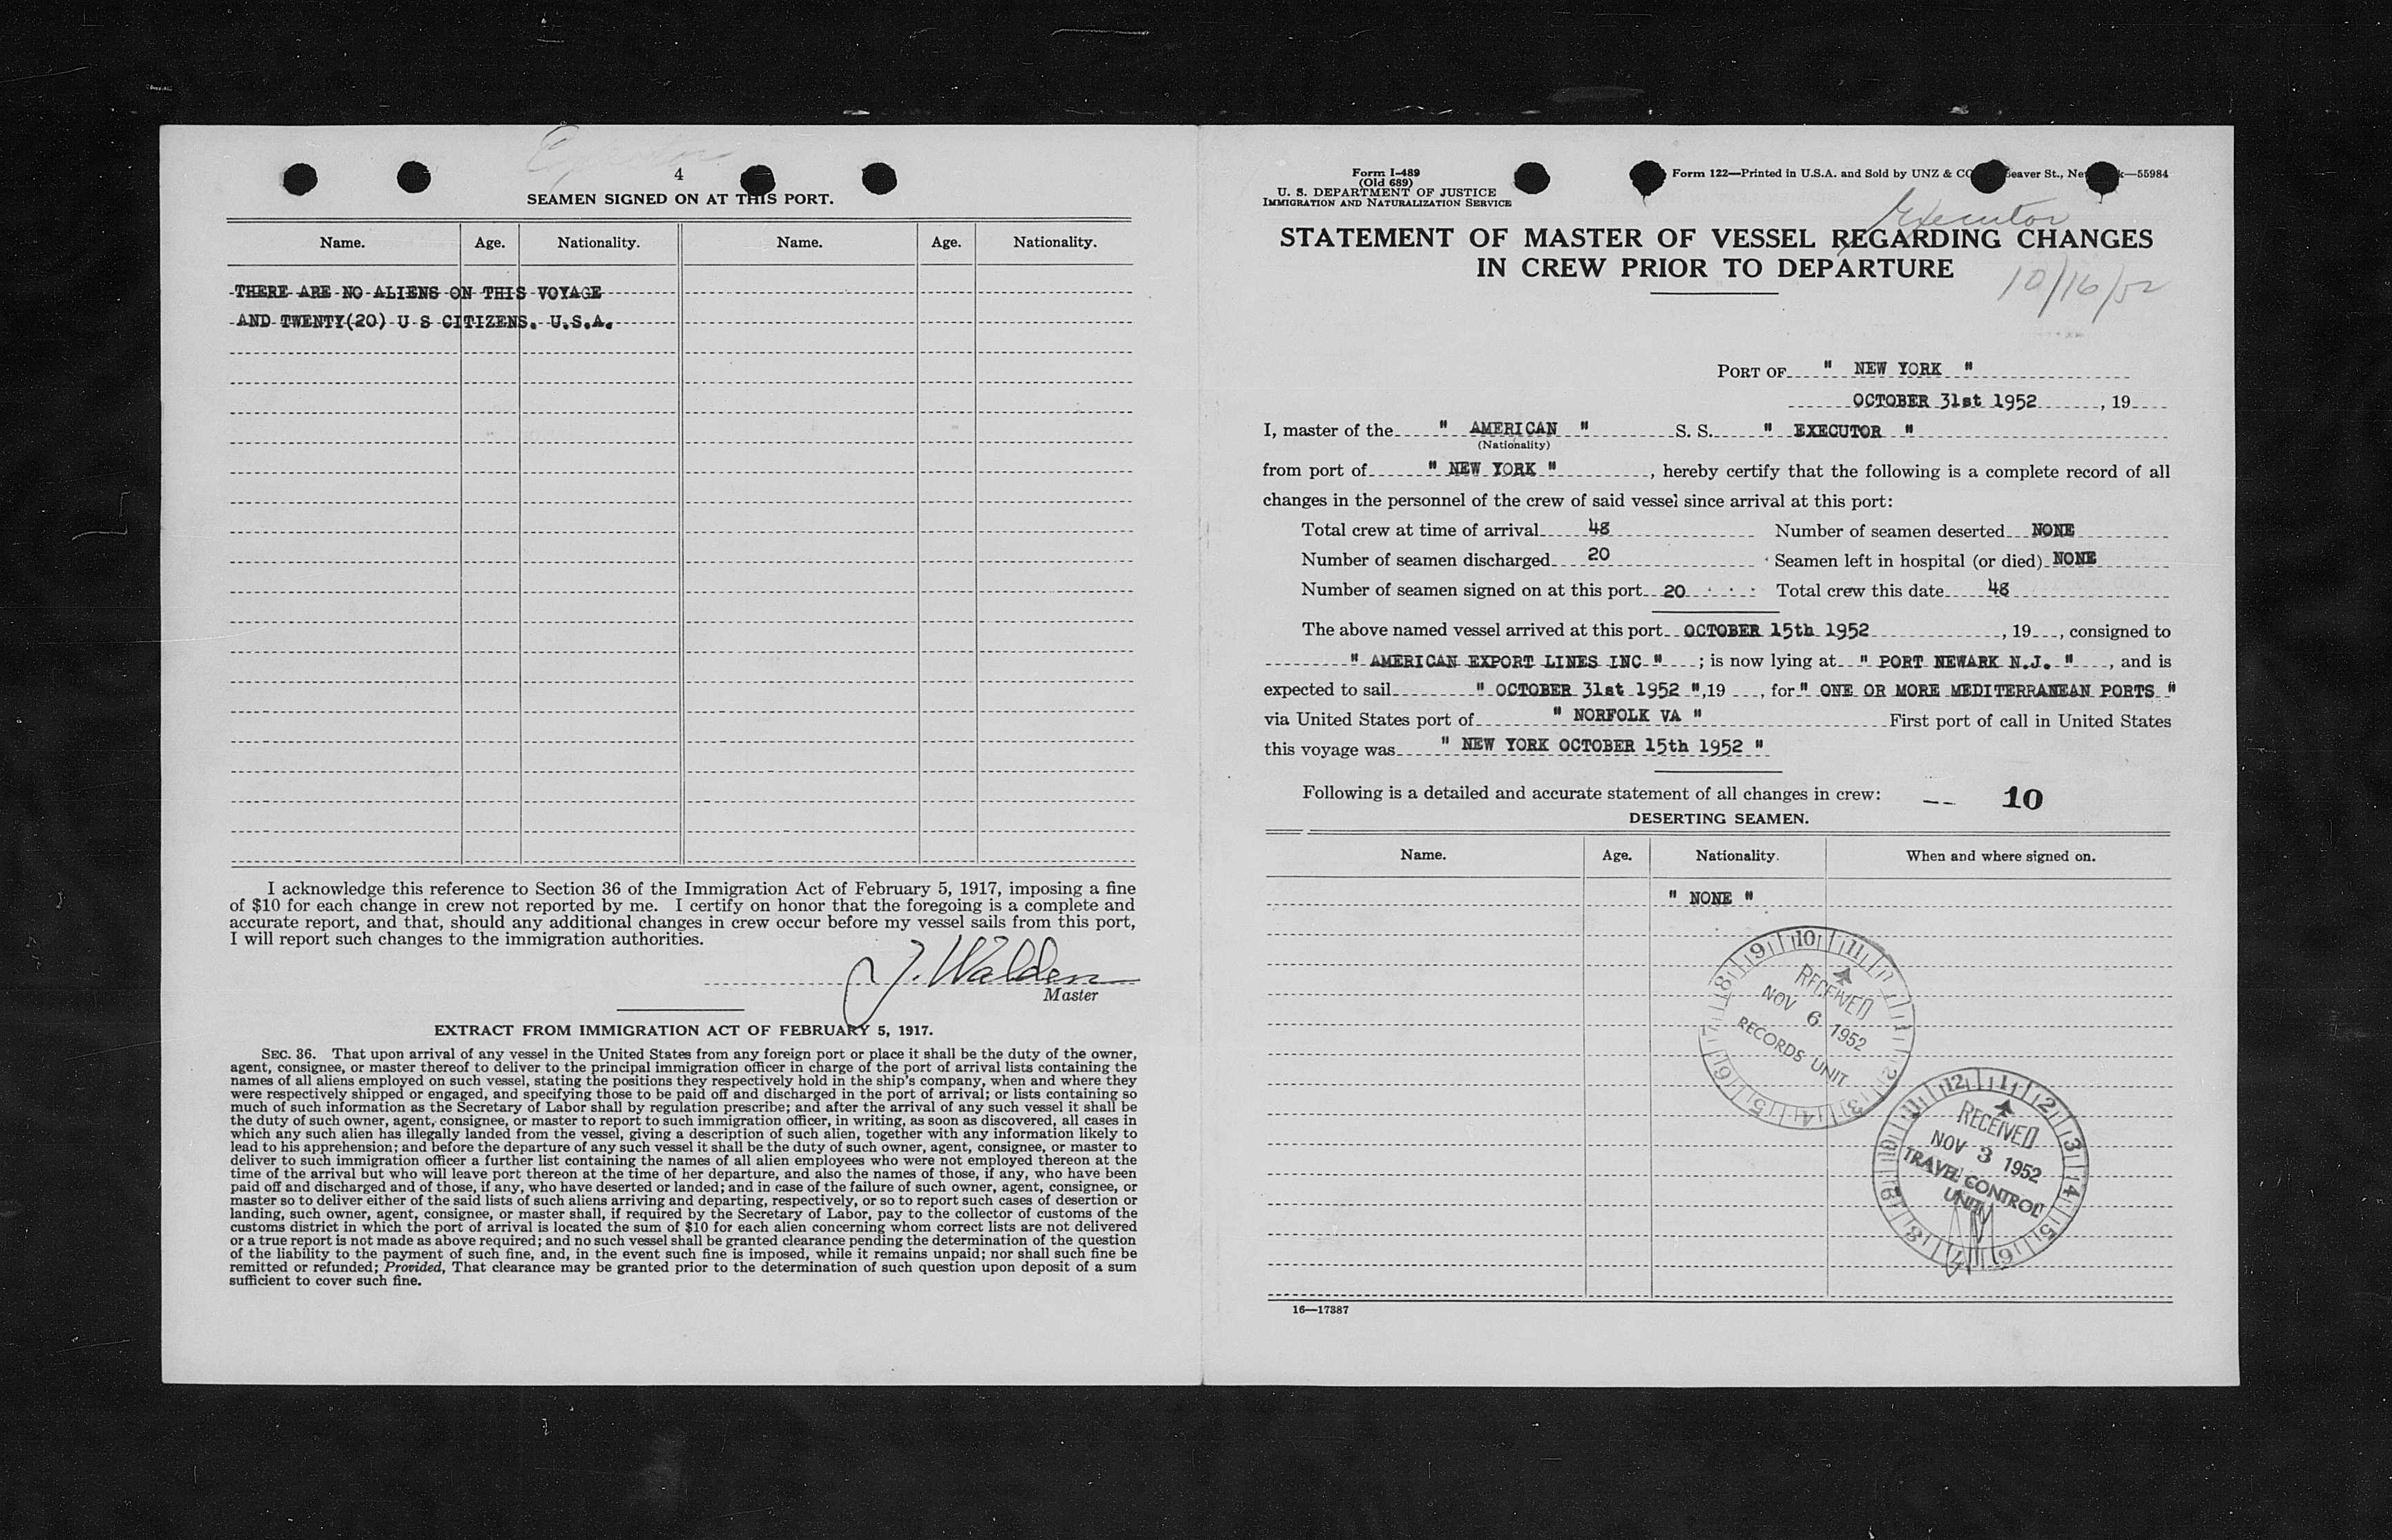 4
SEAMEN SIGNED ON AT THIS PORT.
Name. Age. Nationality. Name. Age. Nationality.
THERE ARE NO ALIENS ON THIS VOYAGE
AND TWENTY(20) U S CITIZENS. U.S.A.
I acknowledge this reference to Section 36 of the Immigration Act of February 5, 1917, imposing a fine
of $10 for each change in crew not reported by me. I certify on honor that the foregoing is a complete and
accurate report, and that, should any additional changes in crew occur before my vessel sails from this port,
I will report such changes to the immigration authorities.
J. Walden
Master
EXTRACT FROM IMMIGRATION ACT OF FEBRUARY 5, 1917.
SEC. 36. That upon arrival of any vessel in the United States from any foreign port or place it shall be the duty of the owner,
agent, consignee, or master thereof to deliver to the principal immigration officer in charge of the port of arrival lists containing the
names of all aliens employed on such vessel, stating the positions they respectively hold in the ship's company, when and where they
were respectively shipped or engaged, and specifying those to be paid off and discharged in the port of arrival; or lists containing so
much of such information as the Secretary of Labor shall by regulation prescribe; and after the arrival of any such vessel it shall be
the duty of such owner, agent, consignee, or master to report to such immigration officer, in writing, as soon as discovered, all cases in
which any such alien has illegally landed from the vessel, giving a description of such alien, together with any information likely to
lead to his apprehension; and before the departure of any such vessel it shall be the duty of such owner, agent, consignee, or master to
deliver to such immigration officer a further list containing the names of all alien employees who were not employed thereon at the
time of the arrival but who will leave port thereon at the time of her departure, and also the names of those, if any, who have been
paid off and discharged and of those, if any, who have deserted or landed; and in case of the failure of such owner, agent, consignee, or
master so to deliver either of the said lists of such aliens arriving and departing, respectively, or so to report such cases of desertion or
landing, such owner, agent, consignee, or master shall, if required by the Secretary of Labor, pay to the collector of customs of the
customs district in which the port of arrival is located the sum of $10 for each alien concerning whom correct lists are not delivered
or a true report is not made as above required; and no such vessel shall be granted clearance pending the determination of the question
of the liability to the payment of such fine, and, in the event such fine is imposed, while it remains unpaid; nor shall such fine be
remitted or refunded; Provided, That clearance may be granted prior to the determination of such question upon deposit of a sum
sufficient to cover such fine.
Form I-489
(Old 689)
U. S. DEPARTMENT OF JUSTICE
IMMIGRATION AND NATURALIZATION SERVICE
Form 122—Printed in U.S.A. and Sold by UNZ & CO Beaver St., New k—55984
Executor
STATEMENT OF MASTER OF VESSEL REGARDING CHANGES
IN CREW PRIOR TO DEPARTURE
10/16/52
PORT OF " NEW YORK "
OCTOBER 31st 1952 , 19
I, master of the " AMERICAN " S. S. " EXECUTOR "
(Nationality)
from port of " NEW YORK " , hereby certify that the following is a complete record of all
changes in the personnel of the crew of said vessel since arrival at this port:
Total crew at time of arrival 48 Number of seamen deserted NONE
Number of seamen discharged 20 Seamen left in hospital (or died) NONE
Number of seamen signed on at this port 20 Total crew this date 48
The above named vessel arrived at this port OCTOBER 15th 1952 , 19 , consigned to
" AMERICAN EXPORT LINES INC " ; is now lying at " PORT NEWARK N.J. " , and is
expected to sail " OCTOBER 31st 1952 ",19 , for " ONE OR MORE MEDITERRANEAN PORTS "
via United States port of " NORFOLK VA " First port of call in United States
this voyage was " NEW YORK OCTOBER 15th 1952 "
Following is a detailed and accurate statement of all changes in crew: -- 10
DESERTING SEAMEN.
Name. Age. Nationality. When and where signed on.
" NONE "
RECEIVED
NOV 6 1952
RECORDS UNIT
RECEIVED
NOV 3 1952
TRAVEL CONTROL
UNIT
16—17387